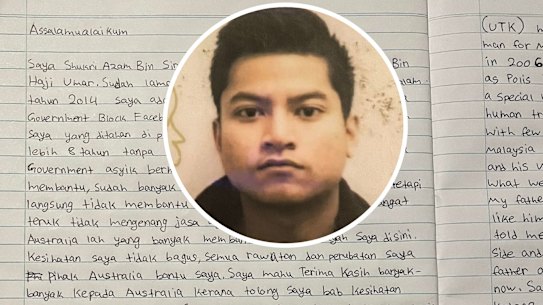 Assalamualaikum
Saya Shukri Azam Bin Bin
Haji Umar. Sudah lama
tahun 2014 saya
Government Block
saya yang ditahan di
lebih 8 tahun tanpa
Government asyik
membantu, sudah banyak tetapi
langsung tidak membantu
teruk tidak mengenang jasa
Australia lah yang banyak saya disini.
Kesihatan saya tidak bagus, semua rawatan dan perubatan saya
pihak Australia bantu saya. Saya mahu Terima Kasih banyak-
banyak kepada Australia kerana tolong saya bab kesihatan
(UTK)
man for
in 2006
as Polis
a special
human
with few
malaysia
and his
what we
my
like him
told me
side and
father
now.